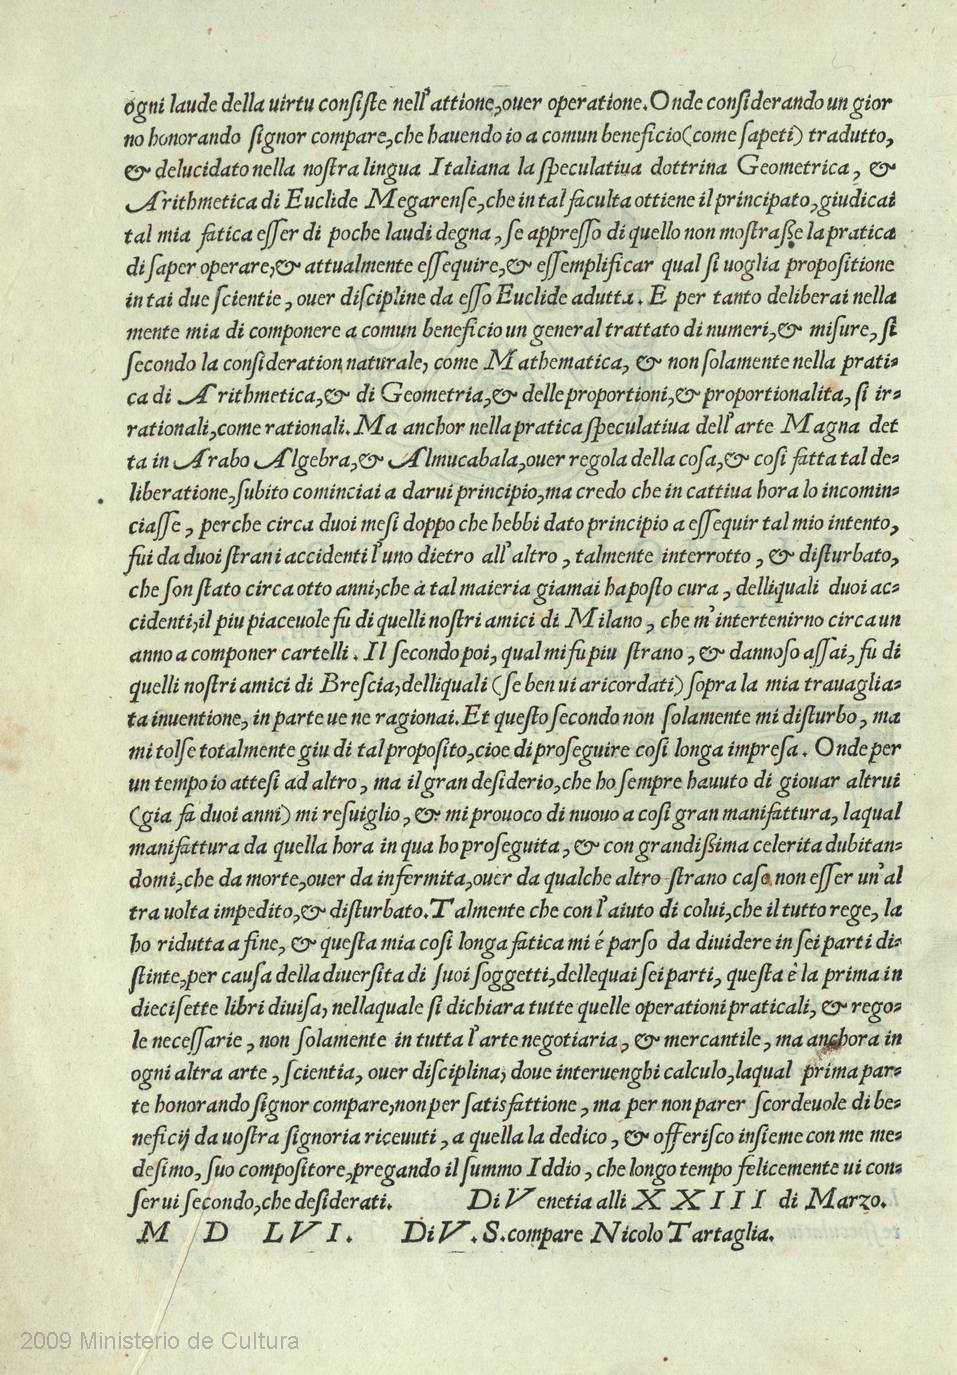 ogni laude della uirtu conſiſte nell'attione, ouer operatione. Onde conſiderando un gior
no honorando ſignor compare, che hauendo io a comun beneficio (come ſapeti) tradutto,
& delucidato nella noſtra lingua Italiana la ſpeculatiua dottrina Geometrica, &
Arithmetica di Euclide Megarenſe, che in tal faculta ottiene il principato, giudicai
tal mia fatica eſſer di poche laudi degna, ſe appreſſo di quello non moſtraſſe la pratica
di ſaper operare, & attualmente eſſequire, & eſſemplificar qual ſi uoglia propoſitione
in tai due ſcientie, ouer diſcipline da eſſo Euclide adutta. E per tanto deliberai nella
mente mia di componere a comun beneficio un general trattato di numeri, & miſure, ſi
ſecondo la conſideration naturale, come Mathematica, & non ſolamente nella prati⸗
ca di Arithmetica, & di Geometria, & delle proportioni, & proportionalita, ſi ir⸗
rationali, come rationali. Ma anchor nella pratica ſpeculatiua dell'arte Magna det
ta in Arabo Algebra, & Almucabala, ouer regola della coſa, & coſi fatta tal de⸗
liberatione, ſubito cominciai a darui principio, ma credo che in cattiua hora lo incomin⸗
ciaſſe, perche circa duoi meſi doppo che hebbi dato principio a eſſequir tal mio intento,
fui da duoi ſtrani accidenti l'uno dietro all'altro, talmente interrotto, & diſturbato,
che ſon ſtato circa otto anni, che à tal maieria giamai ha poſto cura, delliquali duoi ac⸗
cidenti, il piu piaceuole fu di quelli noſtri amici di Milano, che m'intertenirno circa un
anno a componer cartelli. Il ſecondo poi, qual mi fu piu ſtrano, & dannoſo aſſai, fu di
quelli noſtri amici di Breſcia, delliquali (ſe ben ui aricordati) ſopra la mia trauaglia⸗
ta inuentione, in parte ue ne ragionai. Et queſto ſecondo non ſolamente mi diſturbo, ma
mi tolſe totalmente giu di tal propoſito, cioe di proſeguire coſi longa impreſa. Onde per
un tempo io atteſi ad altro, ma il gran deſiderio, che ho ſempre hauuto di giouar altrui
(gia fa duoi anni) mi reſuiglio, & mi prouoco di nuouo a coſi gran manifattura, laqual
manifattura da quella hora in qua ho proſeguita, & con grandiſſima celerita dubitan⸗
domi, che da morte, ouer da infermita, ouer da qualche altro ſtrano caſo non eſſer un'al
tra uolta impedito, & diſturbato. Talmente che con l'aiuto di colui, che il tutto rege, la
ho ridutta a fine, & queſta mia coſi longa fatica mi é parſo da diuidere in ſei parti di⸗
ſtinte, per cauſa della diuerſita di ſuoi ſoggetti, dellequai ſei parti, queſta è la prima in
dieciſette libri diuiſa, nellaquale ſi dichiara tutte quelle operationi praticali, & rego⸗
le neceſſarie, non ſolamente in tutta l'arte negotiaria, & mercantile, ma anchora in
ogni altra arte, ſcientia, ouer diſciplina, doue interuenghi calculo, laqual prima par⸗
te honorando ſignor compare, non per ſatisfattione, ma per non parer ſcordeuole di be⸗
neficij da uoſtra ſignoria riceuuti, a quella la dedico, & offeriſco inſieme con me me⸗
deſimo, ſuo compoſitore, pregando il ſummo Iddio, che longo tempo felicemente ui con⸗
ſerui ſecondo, che deſiderati. Di Venetia alli XXIII di Marzo.
M D LVI. Di V. S. compare Nicolo Tartaglia.
2009 Ministerio de Cultura